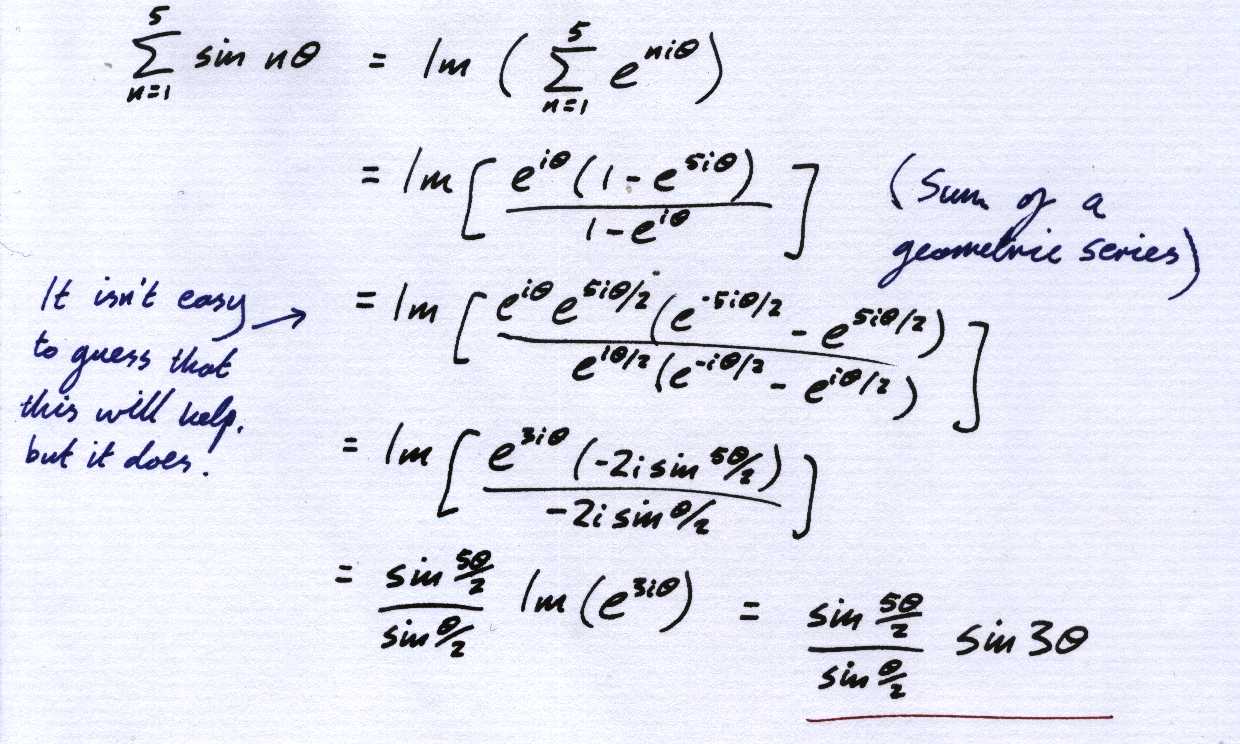 5
∑ sin nθ = Im ( ∑_{n=1}^{5} e^{niθ} )
n=1
= Im [ e^{iθ} (1 - e^{5iθ}) / (1 - e^{iθ}) ]
(Sum of a
geometric series)
It isn't easy
to guess that
this will help.
but it does.
= Im [ e^{iθ} e^{5iθ/2} (e^{-5iθ/2} - e^{5iθ/2}) / e^{iθ/2} (e^{-iθ/2} - e^{iθ/2}) ]
= Im [ e^{3iθ} (-2i sin 5θ/2) / -2i sin θ/2 ]
= sin 5θ/2 / sin θ/2 Im (e^{3iθ}) = sin 5θ/2 / sin θ/2 sin 3θ